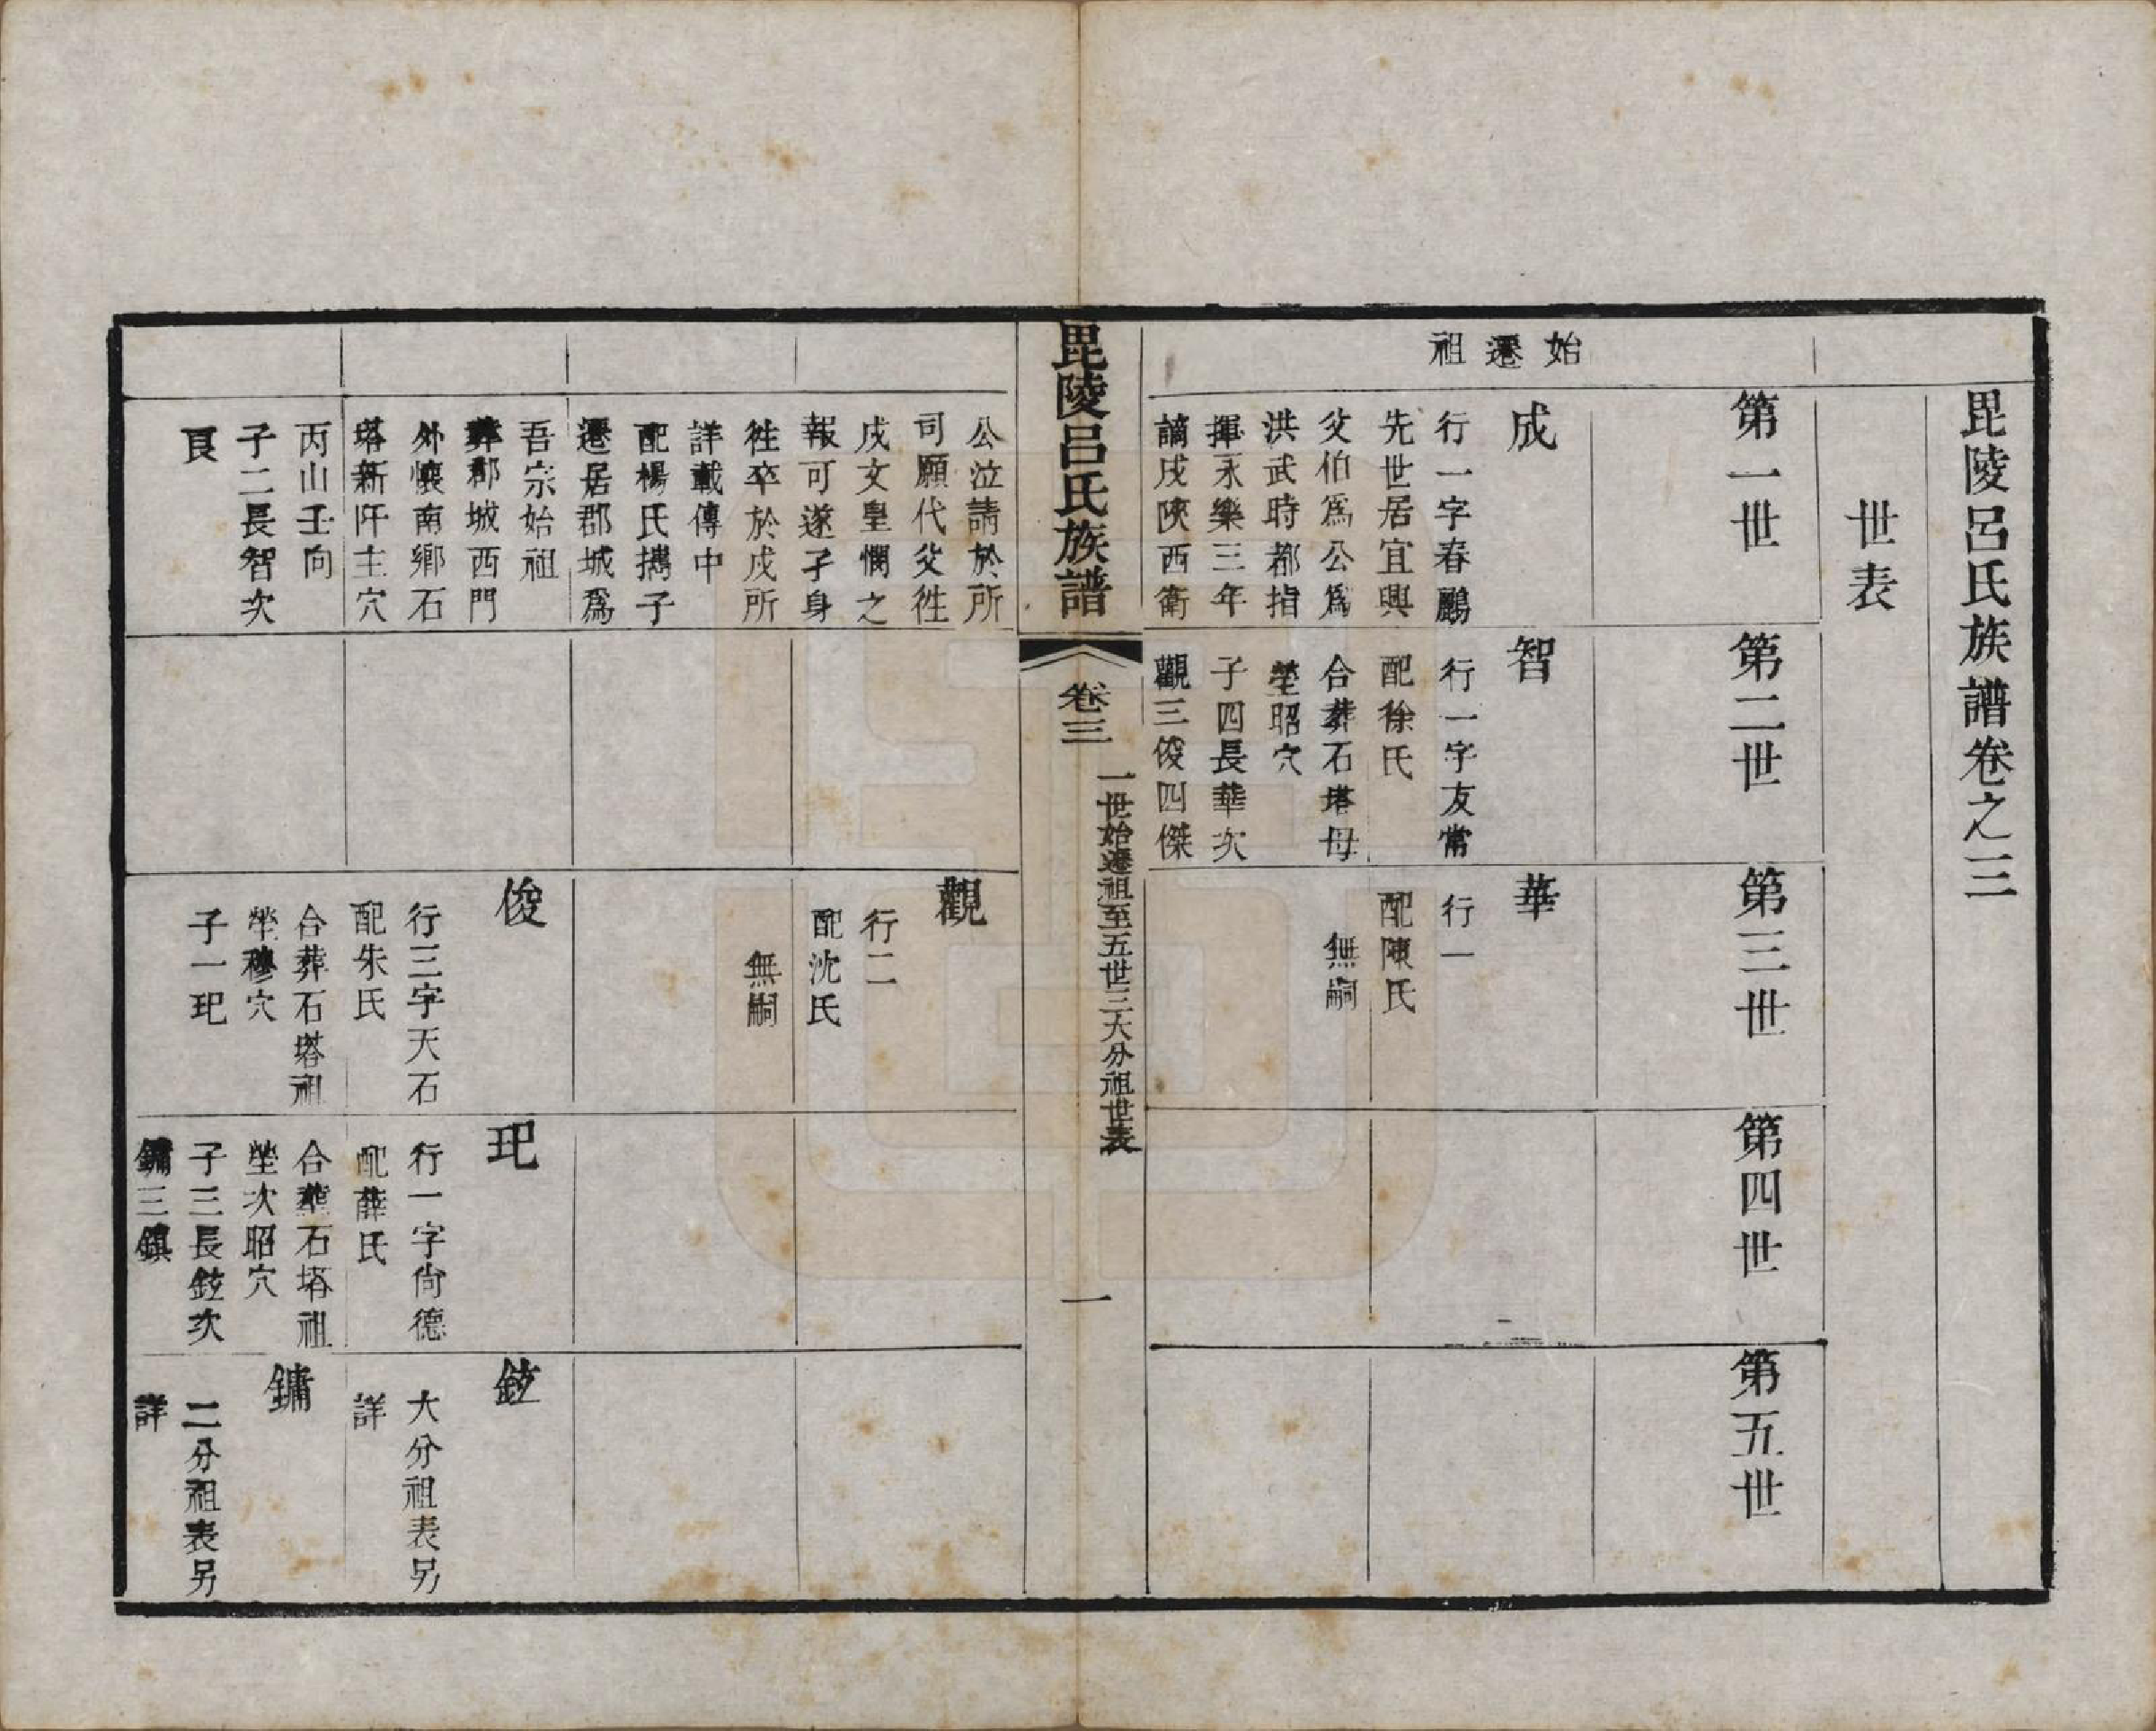 毘陵呂氏族譜卷之三
世表
始遷祖
第一世
第二世
第三世
第四世
第五世
成
行一字春鸝
先世居宜興
父伯爲公爲
洪武時都指
揮永樂三年
謫戍陝西衛
智
行一字友常
配徐氏
合葬石塔母
塋昭穴
子四長華次
觀三俊四傑
華
行一
配陳氏
無嗣
毘陵呂氏族譜
卷三
一世始遷祖至五世三大分祖世表
一
公泣請於所
司願代父徃
戍文皇憫之
報可遂孑身
徃卒於戍所
詳載傳中
配楊氏攜子
遷居郡城爲
吾宗始祖
葬郡城西門
外懷南鄉石
塔新阡主穴
丙山壬向
子二長智次
良
觀
行二
配沈氏
無嗣
俊
行三字天石
配朱氏
合葬石塔祖
塋穆穴
子一玘
玘
行一字尙德
配薛氏
合葬石塔祖
塋次昭穴
子三長鉉次
鏞三鎮
鉉
大分祖表另
詳
鏞
二分祖表另
詳